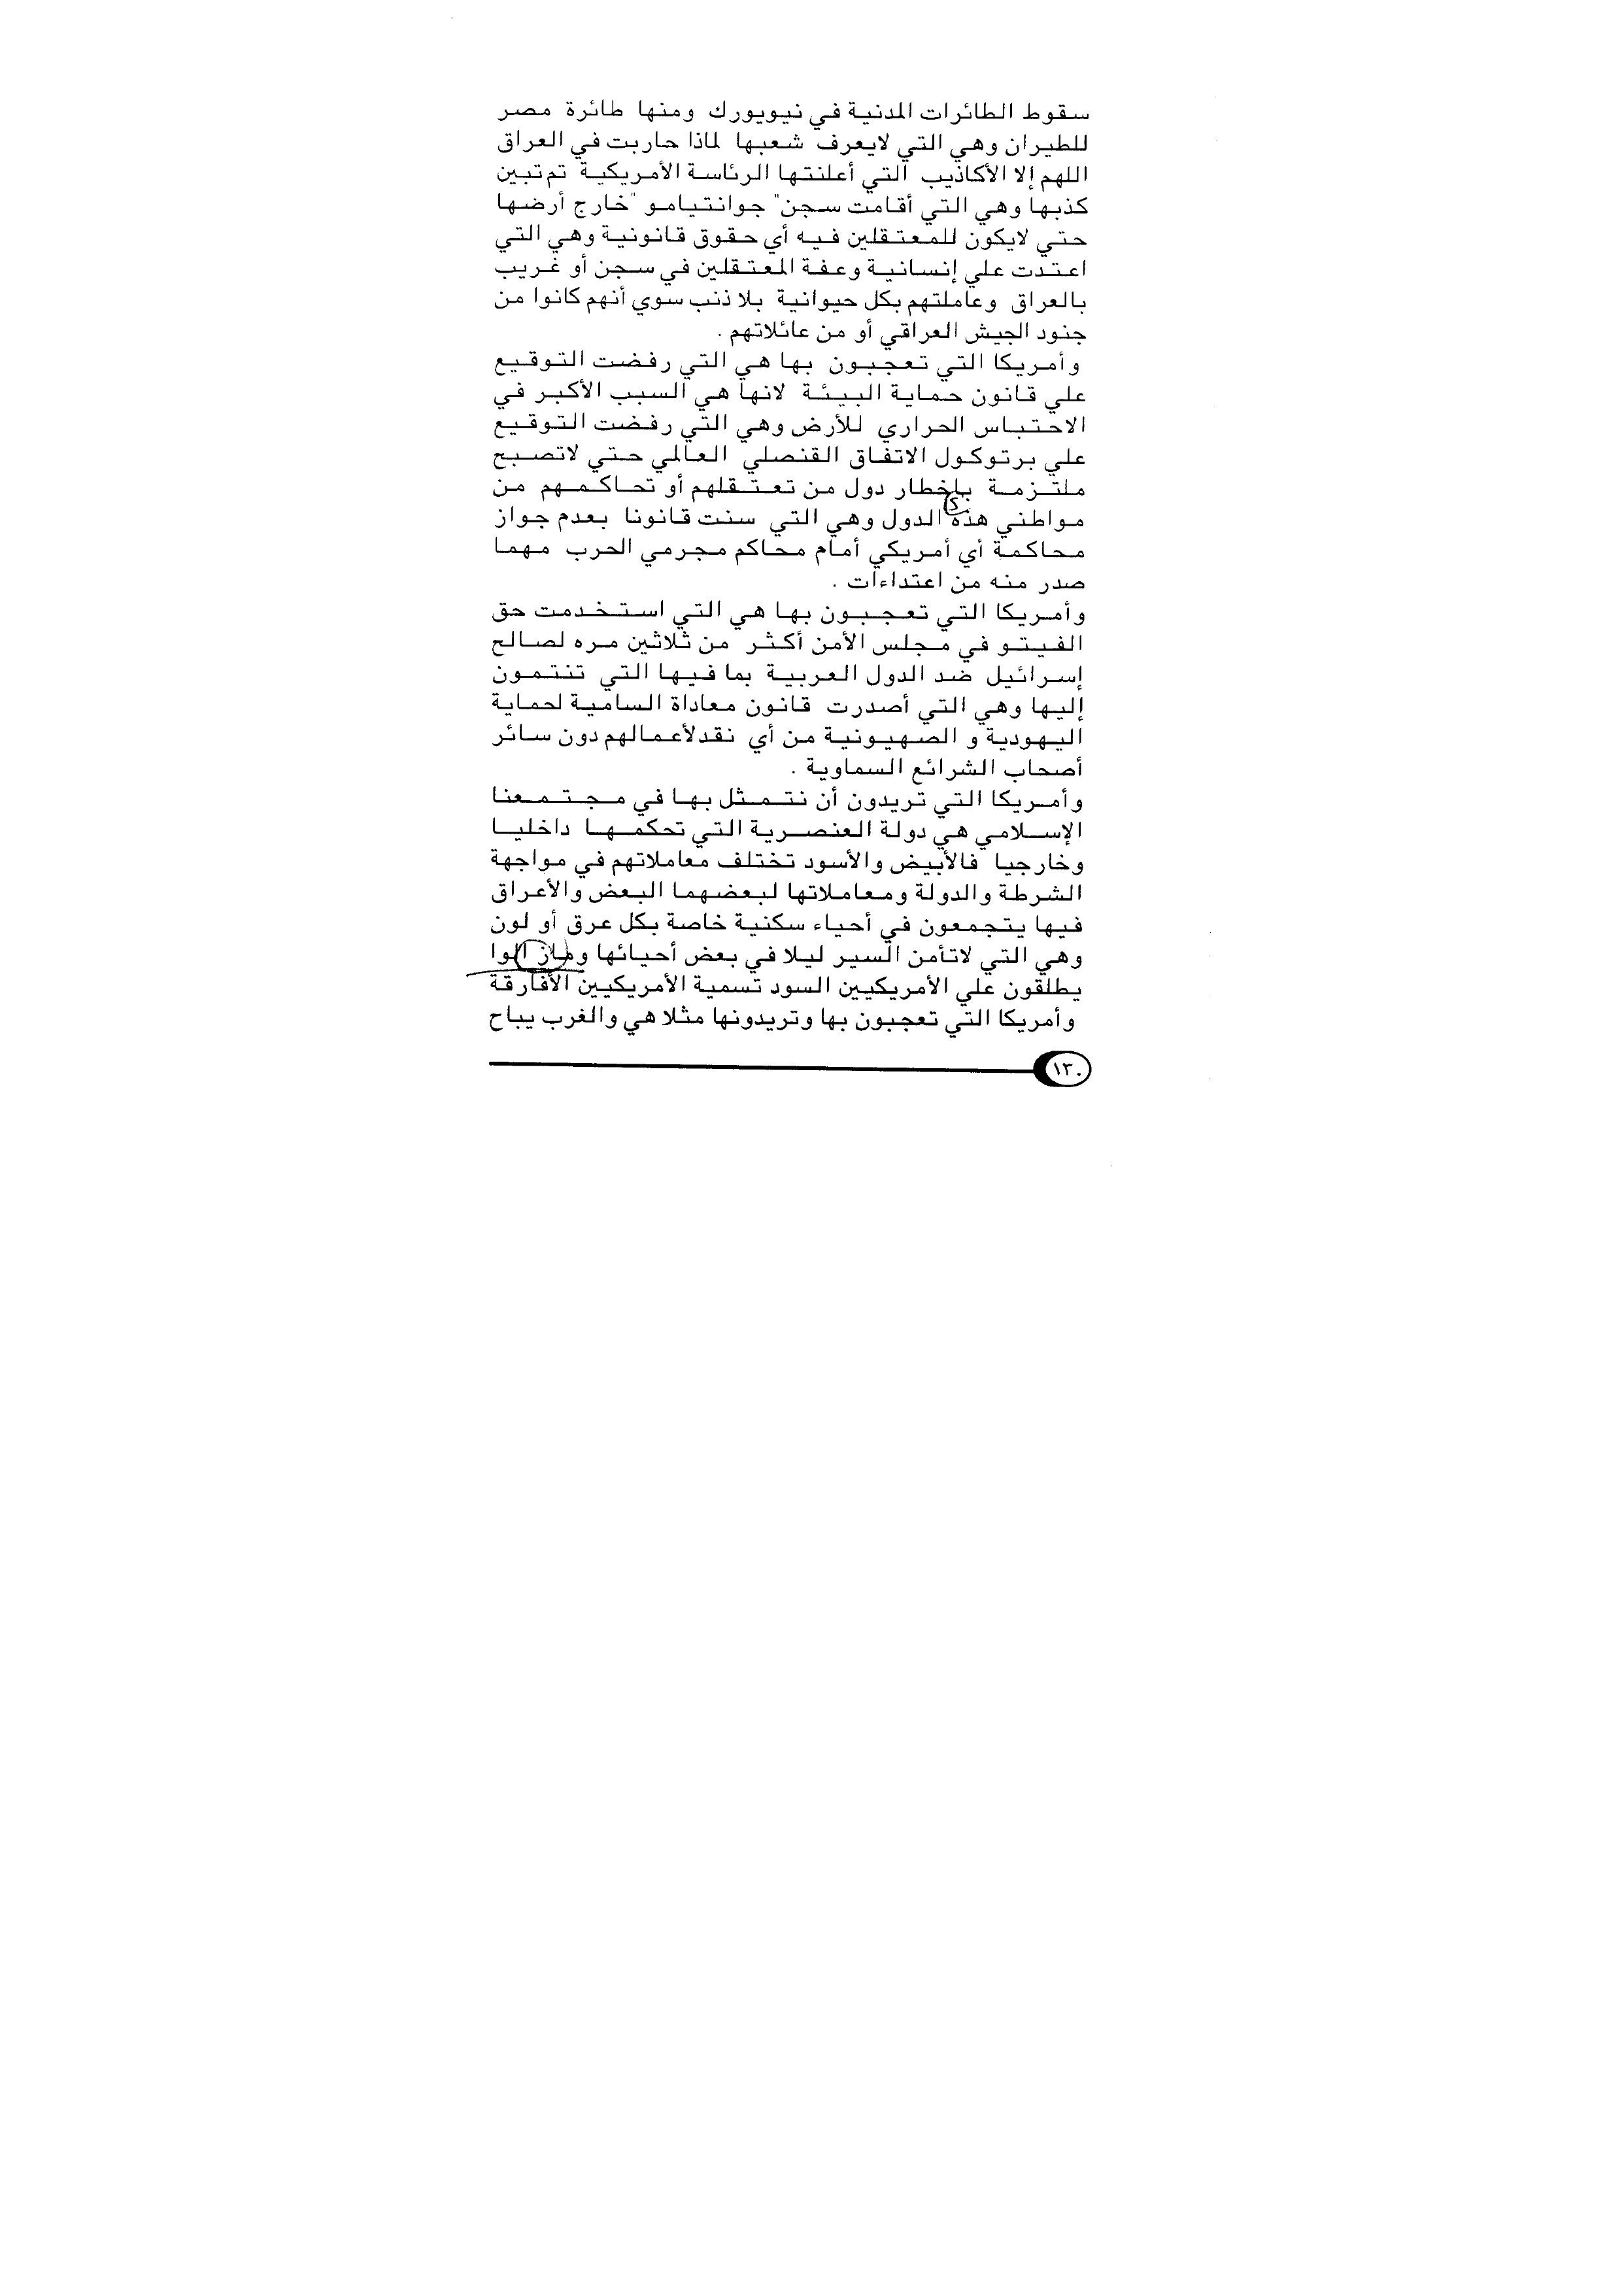 سقوط الطائرات المدنية في نيويورك ومنها طائرة مصر
للطيران وهي التي لايعرف شعبها لماذا حاربت في العراق
اللهم إلا الأكاذيب التي أعلنتها الرئاسة الأمريكية تم تبين
كذبها وهي التي أقامت سجن" جوانتيامو "خارج أرضها
حتي لايكون للمعتقلين فيه أي حقوق قانونية وهي التي
اعتدت علي إنسانية وعفة المعتقلين في سجن أو غريب
بالعراق وعاملتهم بكل حيوانية بلا ذنب سوي أنهم كانوا من
جنود الجيش العراقي أو من عائلاتهم .
وأمريكا التي تعجبون بها هي التي رفضت التوقيع
علي قانون حماية البيئة لانها هي السبب الأكبر في
الاحتباس الحراري للأرض وهي التي رفضت التوقيع
علي برتوكول الاتفاق القنصلي العالمي حتي لاتصبح
ملتزمة بإخطار دول من تعتقلهم أو تحاكمهم من
مواطني هذه الدول وهي التي سنت قانونا بعدم جواز
محاكمة أي أمريكي أمام محاكم مجرمي الحرب مهما
صدر منه من اعتداءات .
وأمريكا التي تعجبون بها هي التي استخدمت حق
الفيتو في مجلس الأمن أكثر من ثلاثين مره لصالح
إسرائيل ضد الدول العربية بما فيها التي تنتمون
إليها وهي التي أصدرت قانون معاداة السامية لحماية
اليهودية و الصهيونية من أي نقدلأعمالهم دون سائر
أصحاب الشرائع السماوية .
وأمريكا التي تريدون أن نتمثل بها في مجتمعنا
الإسلامي هي دولة العنصرية التي تحكمها داخليا
وخارجيا فالأبيض والأسود تختلف معاملاتهم في مواجهة
الشرطة والدولة ومعاملاتها لبعضهما البعض والأعراق
فيها يتجمعون في أحياء سكنية خاصة بكل عرق أو لون
وهي التي لاتأمن السير ليلا في بعض أحيائها ومازالوا
يطلقون علي الأمريكيين السود تسمية الأمريكيين الأفارقة
وأمريكا التي تعجبون بها وتريدونها مثلا هي والغرب يباح
١٣٠